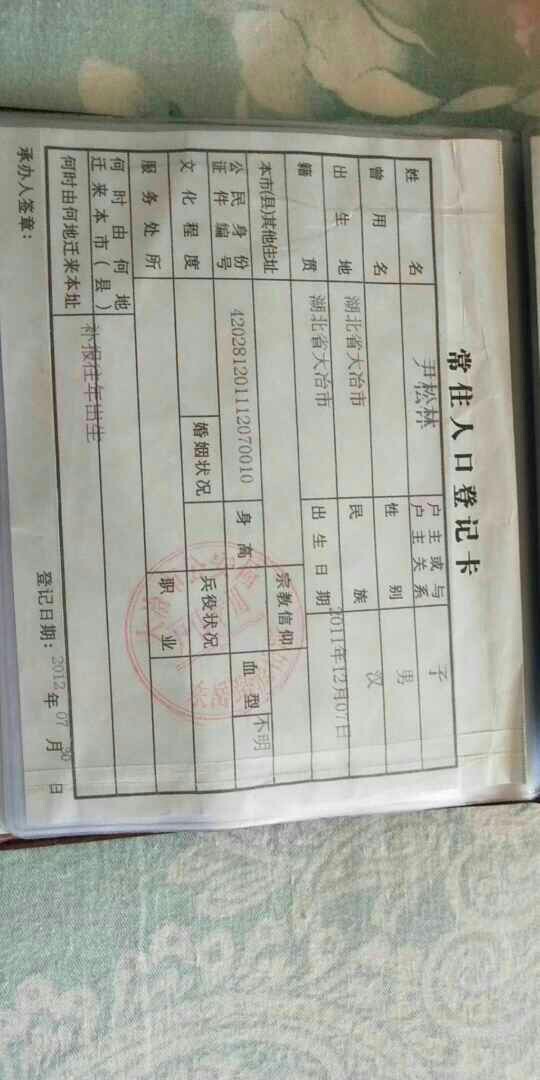 常住人口登记卡
姓名 尹松林 户主或与户主关系 子
曾用名 性别 男
出生地 湖北省大冶市 民族 汉
籍贯 湖北省大冶市 出生日期 2011年12月07日
本市(县)其他住址 宗教信仰
公民身份证件编号 420281201112070010 身高 血型 不明
文化程度 婚姻状况 兵役状况
服务处所 职业
何时由何地迁来本市(县) 补报往年出生
何时由何地迁来本址
承办人签章: 登记日期: 2012 年 07 月 30 日